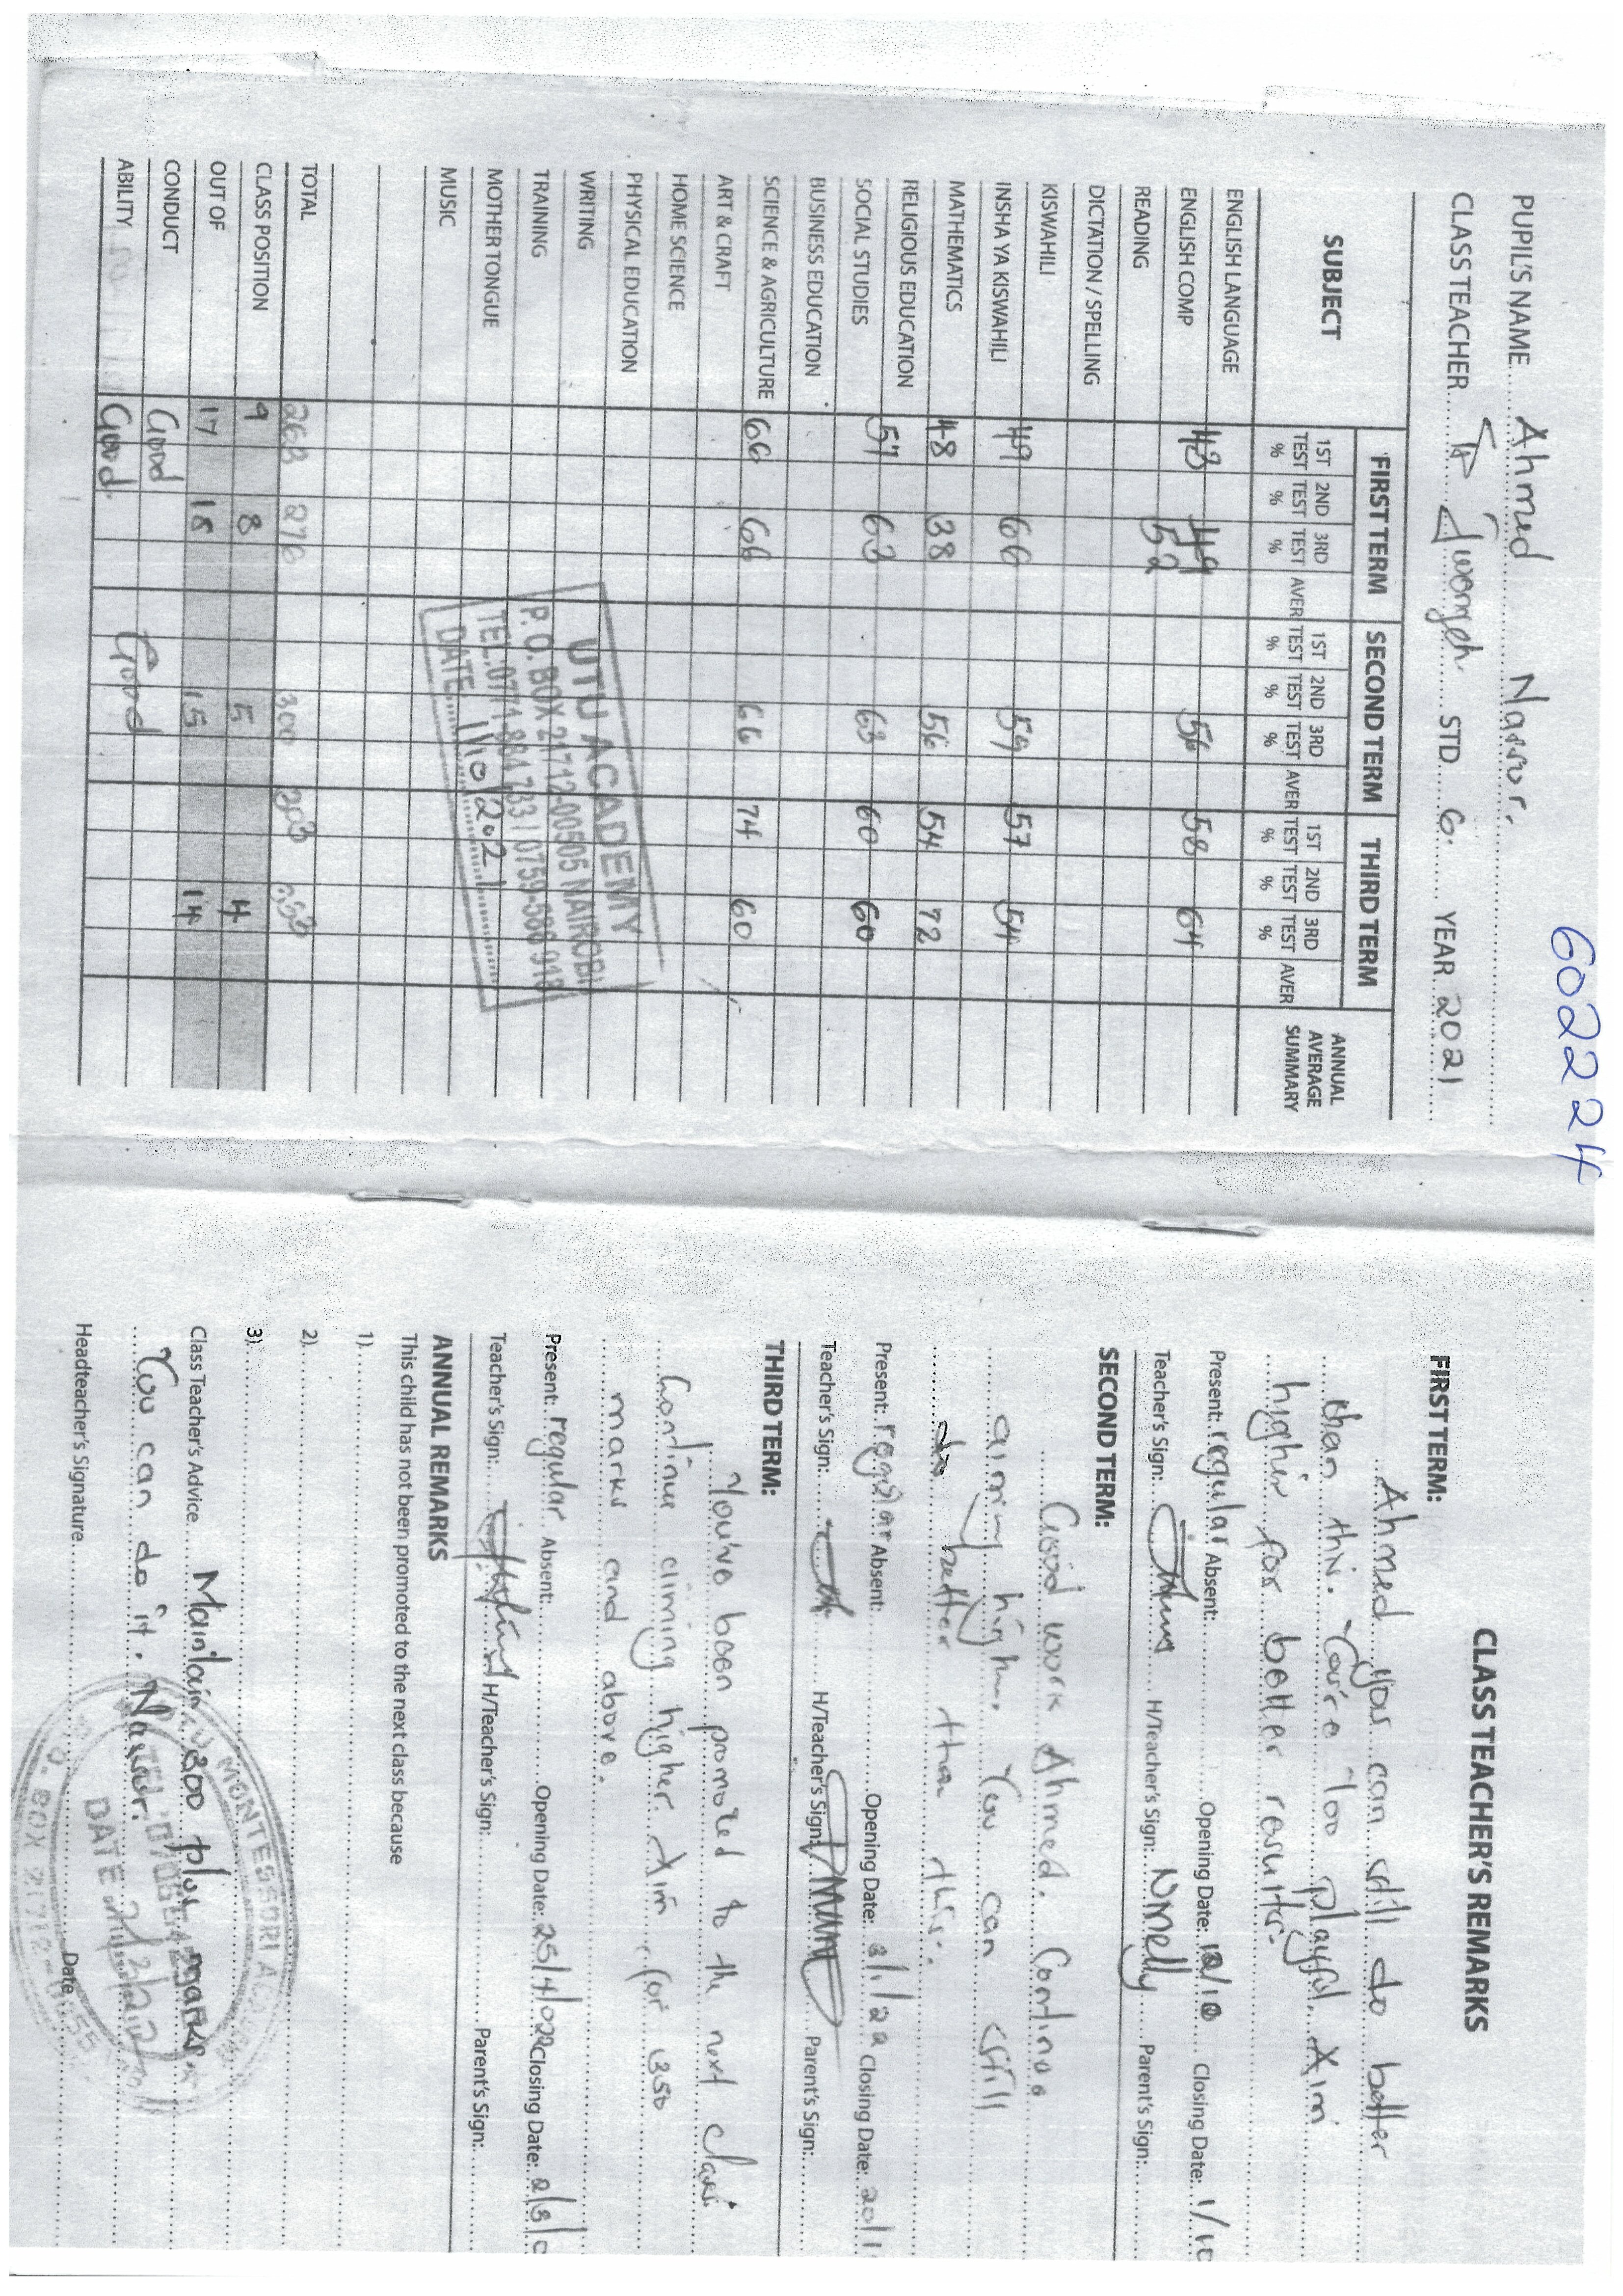 602224
PUPIL'S NAME Ahmed Nassor.
CLASS TEACHER STD. 6. YEAR 2021
SUBJECT FIRST TERM SECOND TERM THIRD TERM ANNUAL AVERAGE SUMMARY
1ST TEST % 2ND TEST % 3RD TEST % AVER 1ST TEST % 2ND TEST % 3RD TEST % AVER 1ST TEST % 2ND TEST % 3RD TEST % AVER
ENGLISH LANGUAGE
ENGLISH COMP 43 49 56 58 64
READING 52
DICTATION / SPELLING
KISWAHILI
INSHA YA KISWAHILI 49 66 59 57 54
MATHEMATICS 48 38 56 54 72
RELIGIOUS EDUCATION
SOCIAL STUDIES 57 63 63 60 60
BUSINESS EDUCATION
SCIENCE & AGRICULTURE 66 66 66 74 60
ART & CRAFT
HOME SCIENCE
PHYSICAL EDUCATION
WRITING
TRAINING
MOTHER TONGUE
MUSIC
TOTAL 263 276 300 303
CLASS POSITION 9 8 5 4
OUT OF 17 18 15 14
CONDUCT Good
ABILITY Good Good
UTU ACADEMY
P. O. BOX 21712-00505 NAIROBI
DATE 1/10/2021
CLASS TEACHER'S REMARKS
FIRST TERM:
Ahmed you can still do better
than this. You're too playful. Aim
higher for better results.
Present: regular Absent: Opening Date: Closing Date:
Teacher's Sign: H/Teacher's Sign: Parent's Sign:
SECOND TERM:
Good work Ahmed. Continue
aiming high. You can still
do better than this.
Present: regular Absent: Opening Date: Closing Date:
Teacher's Sign: H/Teacher's Sign: Parent's Sign:
THIRD TERM:
You've been promoted to the next class.
Continue aiming higher. Aim for 350
marks and above.
Present: regular Absent: Opening Date: 25/4/022 Closing Date:
Teacher's Sign: H/Teacher's Sign: Parent's Sign:
ANNUAL REMARKS
This child has not been promoted to the next class because
1)
2)
3)
Class Teacher's Advice Maintain 300 plus marks.
You can do it. Nassor.
Headteacher's Signature Date
MONTESSORI
DATE